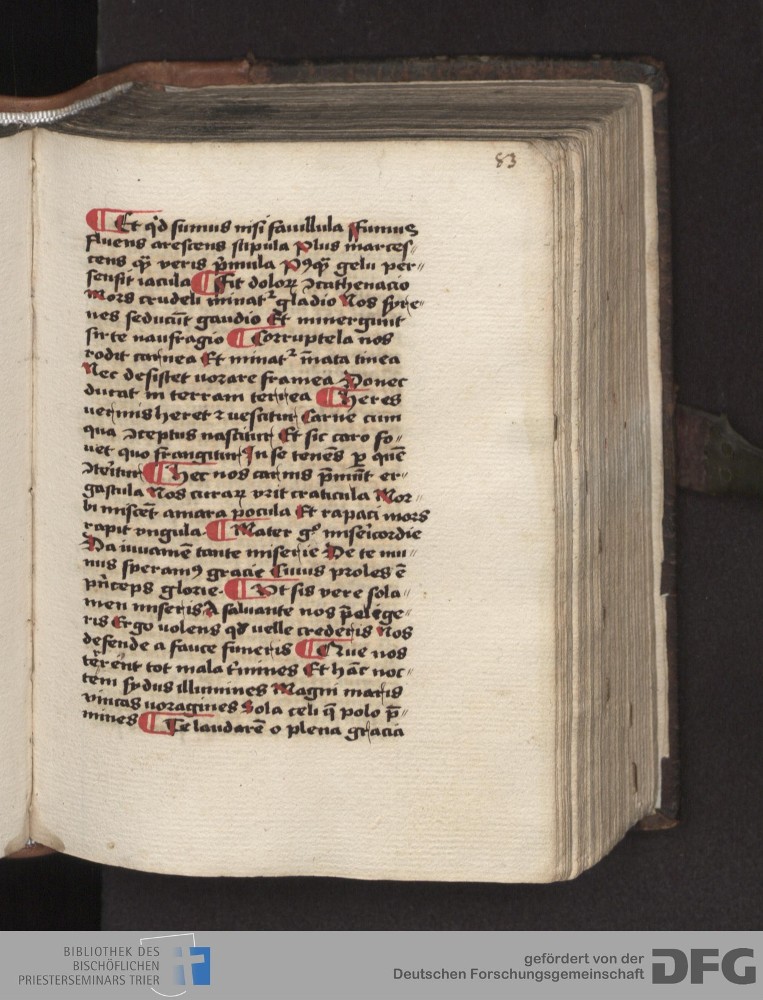 83
Et qͥd sumus nisi fauillula ffumus
fluens arescens stipula Plus marces〃
cens qͣ veris p̄mula Pꝰqͣ gelu per〃
sensit iacula Fit dolorꝝ ↄcathenacio
Mors crudeli minatᷣ gladio Nos syre〃
nes seducūt gaudio Et minergunt
sirte naufragio Corruptela nos
rodit carnea Et minatᷣ īnata tinea
Nec desistet uorare framea Donec
ducat in terram terrea Heres
uermis heret ⁊ vescitur Carne cum
qua ↄceptus nascitur Et sic caro fo〃
uet quo frangitur In se tenens ꝑ quē
ↄteritur Hec nos carnis p̄mūt er〃
gastula Nos curarꝝ vrit craticula Mor〃
bi miscēt amara pocula Et rapaci mors
rapit vngula Mater gͦ misericordie
Da iuuamē tante miserie De te mu〃
nus speramꝰ gracie Cuius proles ē
pͥnceps glorie Vt sis vere sola〃
men miseris A saluante nos p̄elege〃
ris Ergo uolens qd uelle crederis Nos
defende a fauce funeris Que nos
terēnt tot mala t̓mines Et hāc noc〃
tem sydus illumines Magni maris
vincas uoragines Sola celi q̄ polo p̄〃
mines Te laudarē o plena gracia
BIBLIOTHEK DES
BISCHÖFLICHEN
PRIESTERSEMINARS TRIER
gefördert von der
Deutschen Forschungsgemeinschaft
DFG